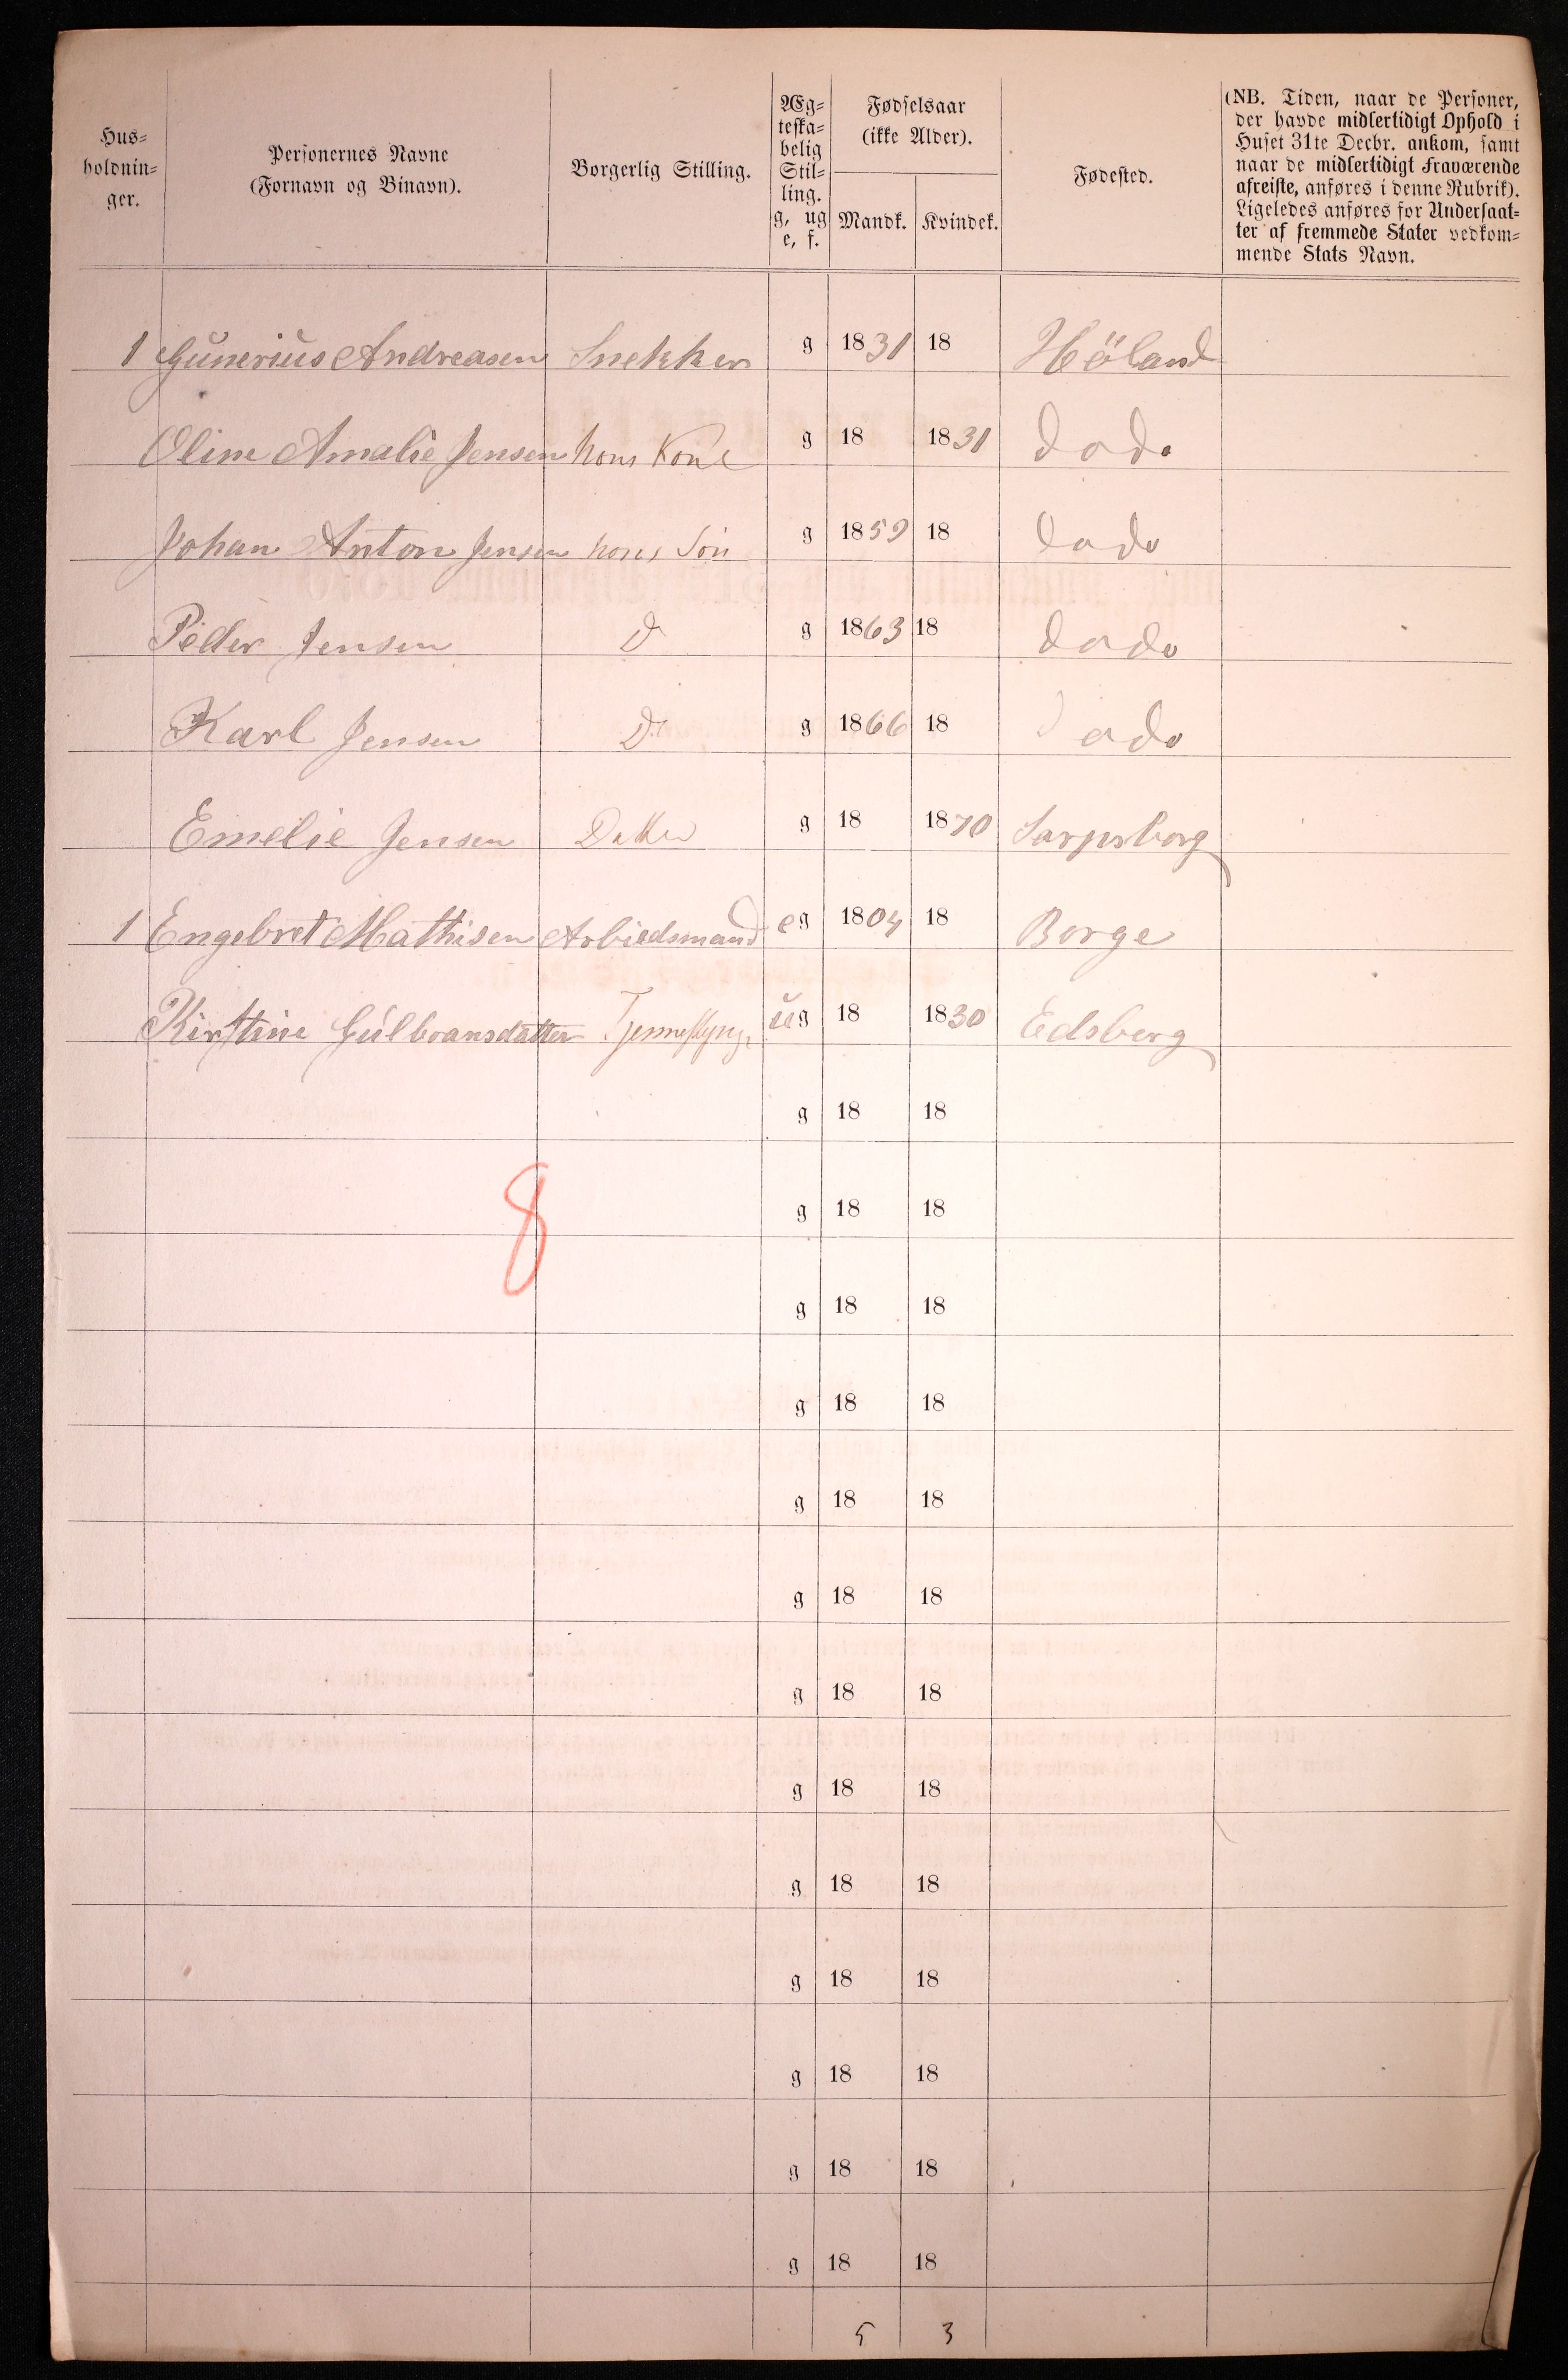 Hus-
holdnin-
ger.
Personernes Navne
(Fornavn og Binavn).
Borgerlig Stilling.
Æg-
teska-
belig
Stil-
ling.
g, ug
e, f.
Fødselsaar
(ikke Alder).
Mandk. Kvindek.
Fødested.
(NB. Tiden, naar de Personer,
der havde midlertidigt Ophold i
Huset 31te Decbr. ankom, samt
naar de midlertidigt Fraværende
afreiste, anføres i denne Rubrik).
Ligeledes anføres for Undersaat-
ter af fremmede Stater vedkom-
mende Stats Navn.
1 Gunerius Andreasen Snekker g 1831 18 Höland
Oline Amalie Jensen hans Kone g 18 1831 dodo
Johan Anton Jensen hans Sön g 1859 18 dodo
Peder Jensen D g 1863 18 dodo
Karl Jensen Do g 1866 18 dodo
Emelie Jensen Datter g 18 1870 Sarpsborg
1 Engebret Mathisen Arbiedsmand eg 1804 18 Borge
Kirstine Gulbransdatter Tjenestpige ug 18 1830 Edsberg
g 18 18
8
g 18 18
g 18 18
g 18 18
g 18 18
g 18 18
g 18 18
g 18 18
g 18 18
g 18 18
g 18 18
g 18 18
g 18 18
5 3